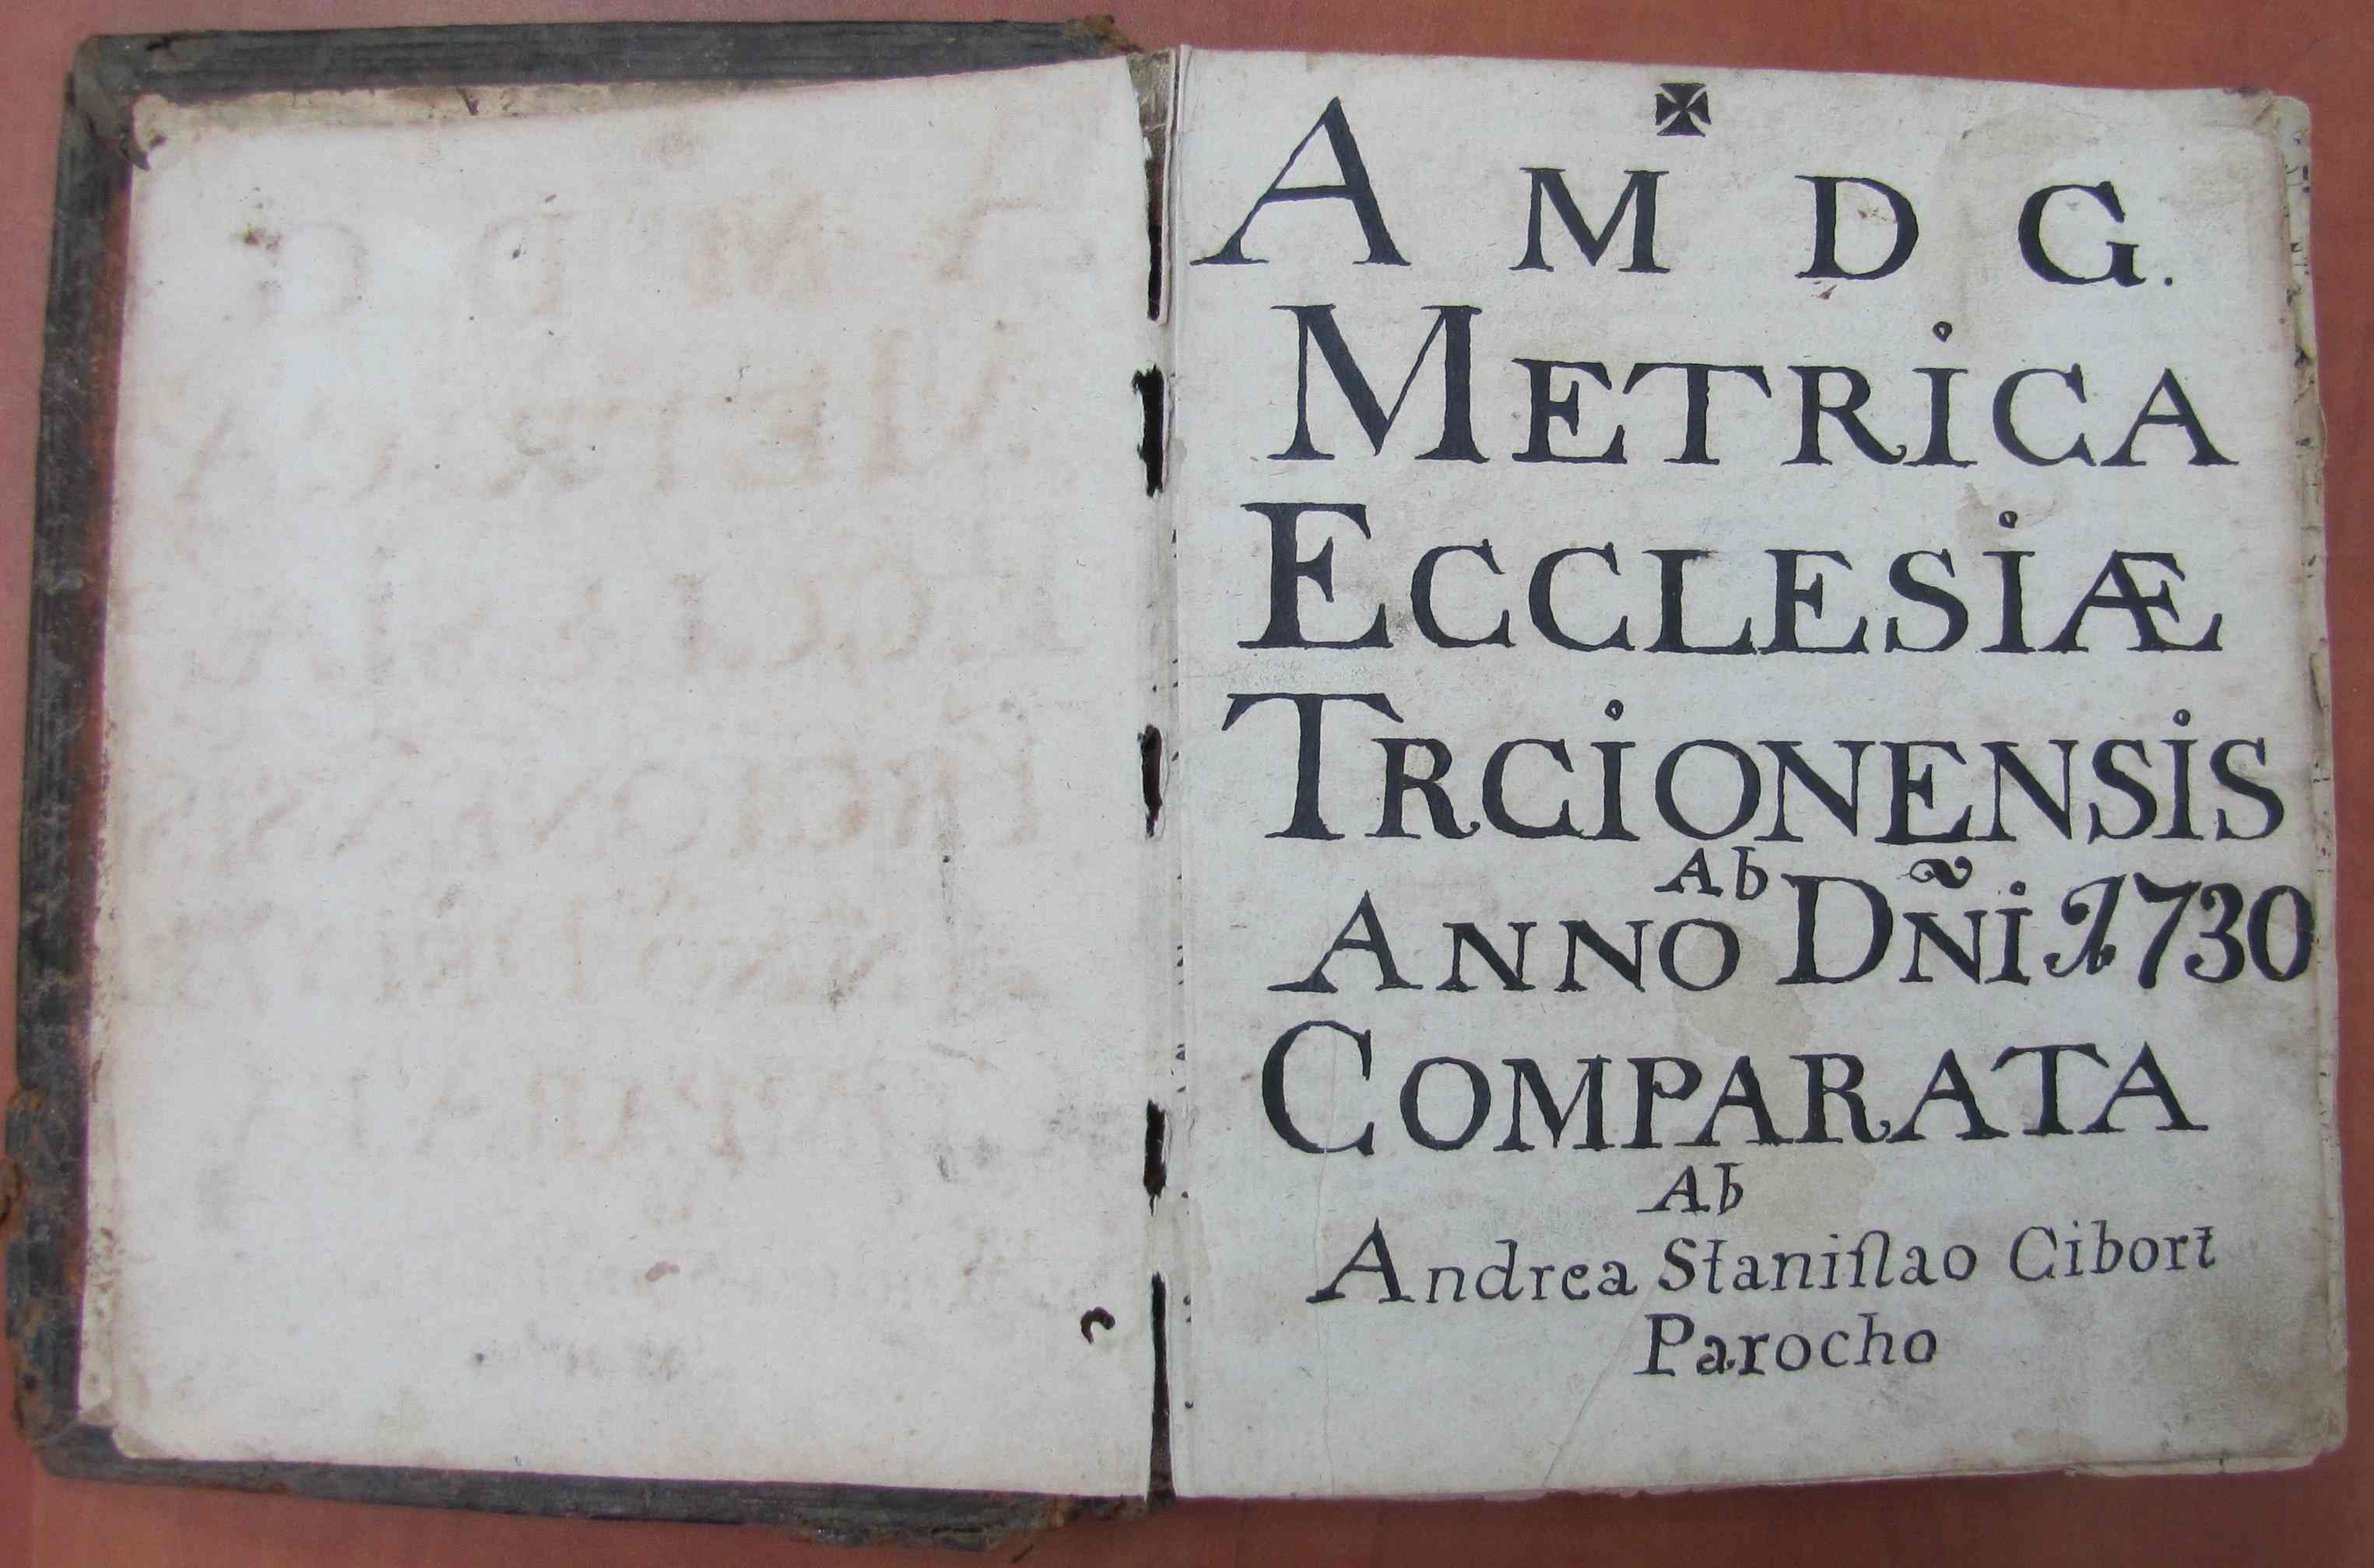 ✠
A M D G.
METRICA
ECCLESIÆ
TRCIONENSIS
Ab
ANNO DÑI 1730
COMPARATA
Ab
Andrea Staniſlao Cibort
Parocho